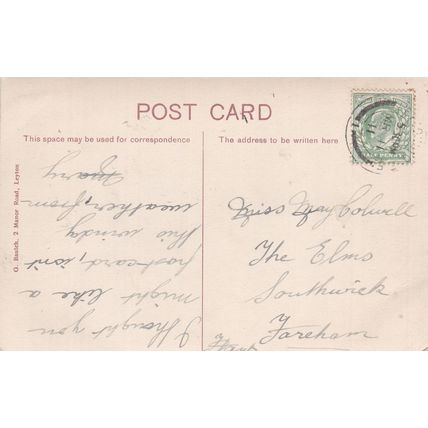 POST CARD
This space may be used for correspondence
The address to be written here
G. Bastick, 2 Manor Road, Leyton
I thought you
might like a
postcard, isn't
this windy
weather, from
Mary
Miss May Colwell
The Elms
Southwick
Fareham
Hants
HALF PENNY